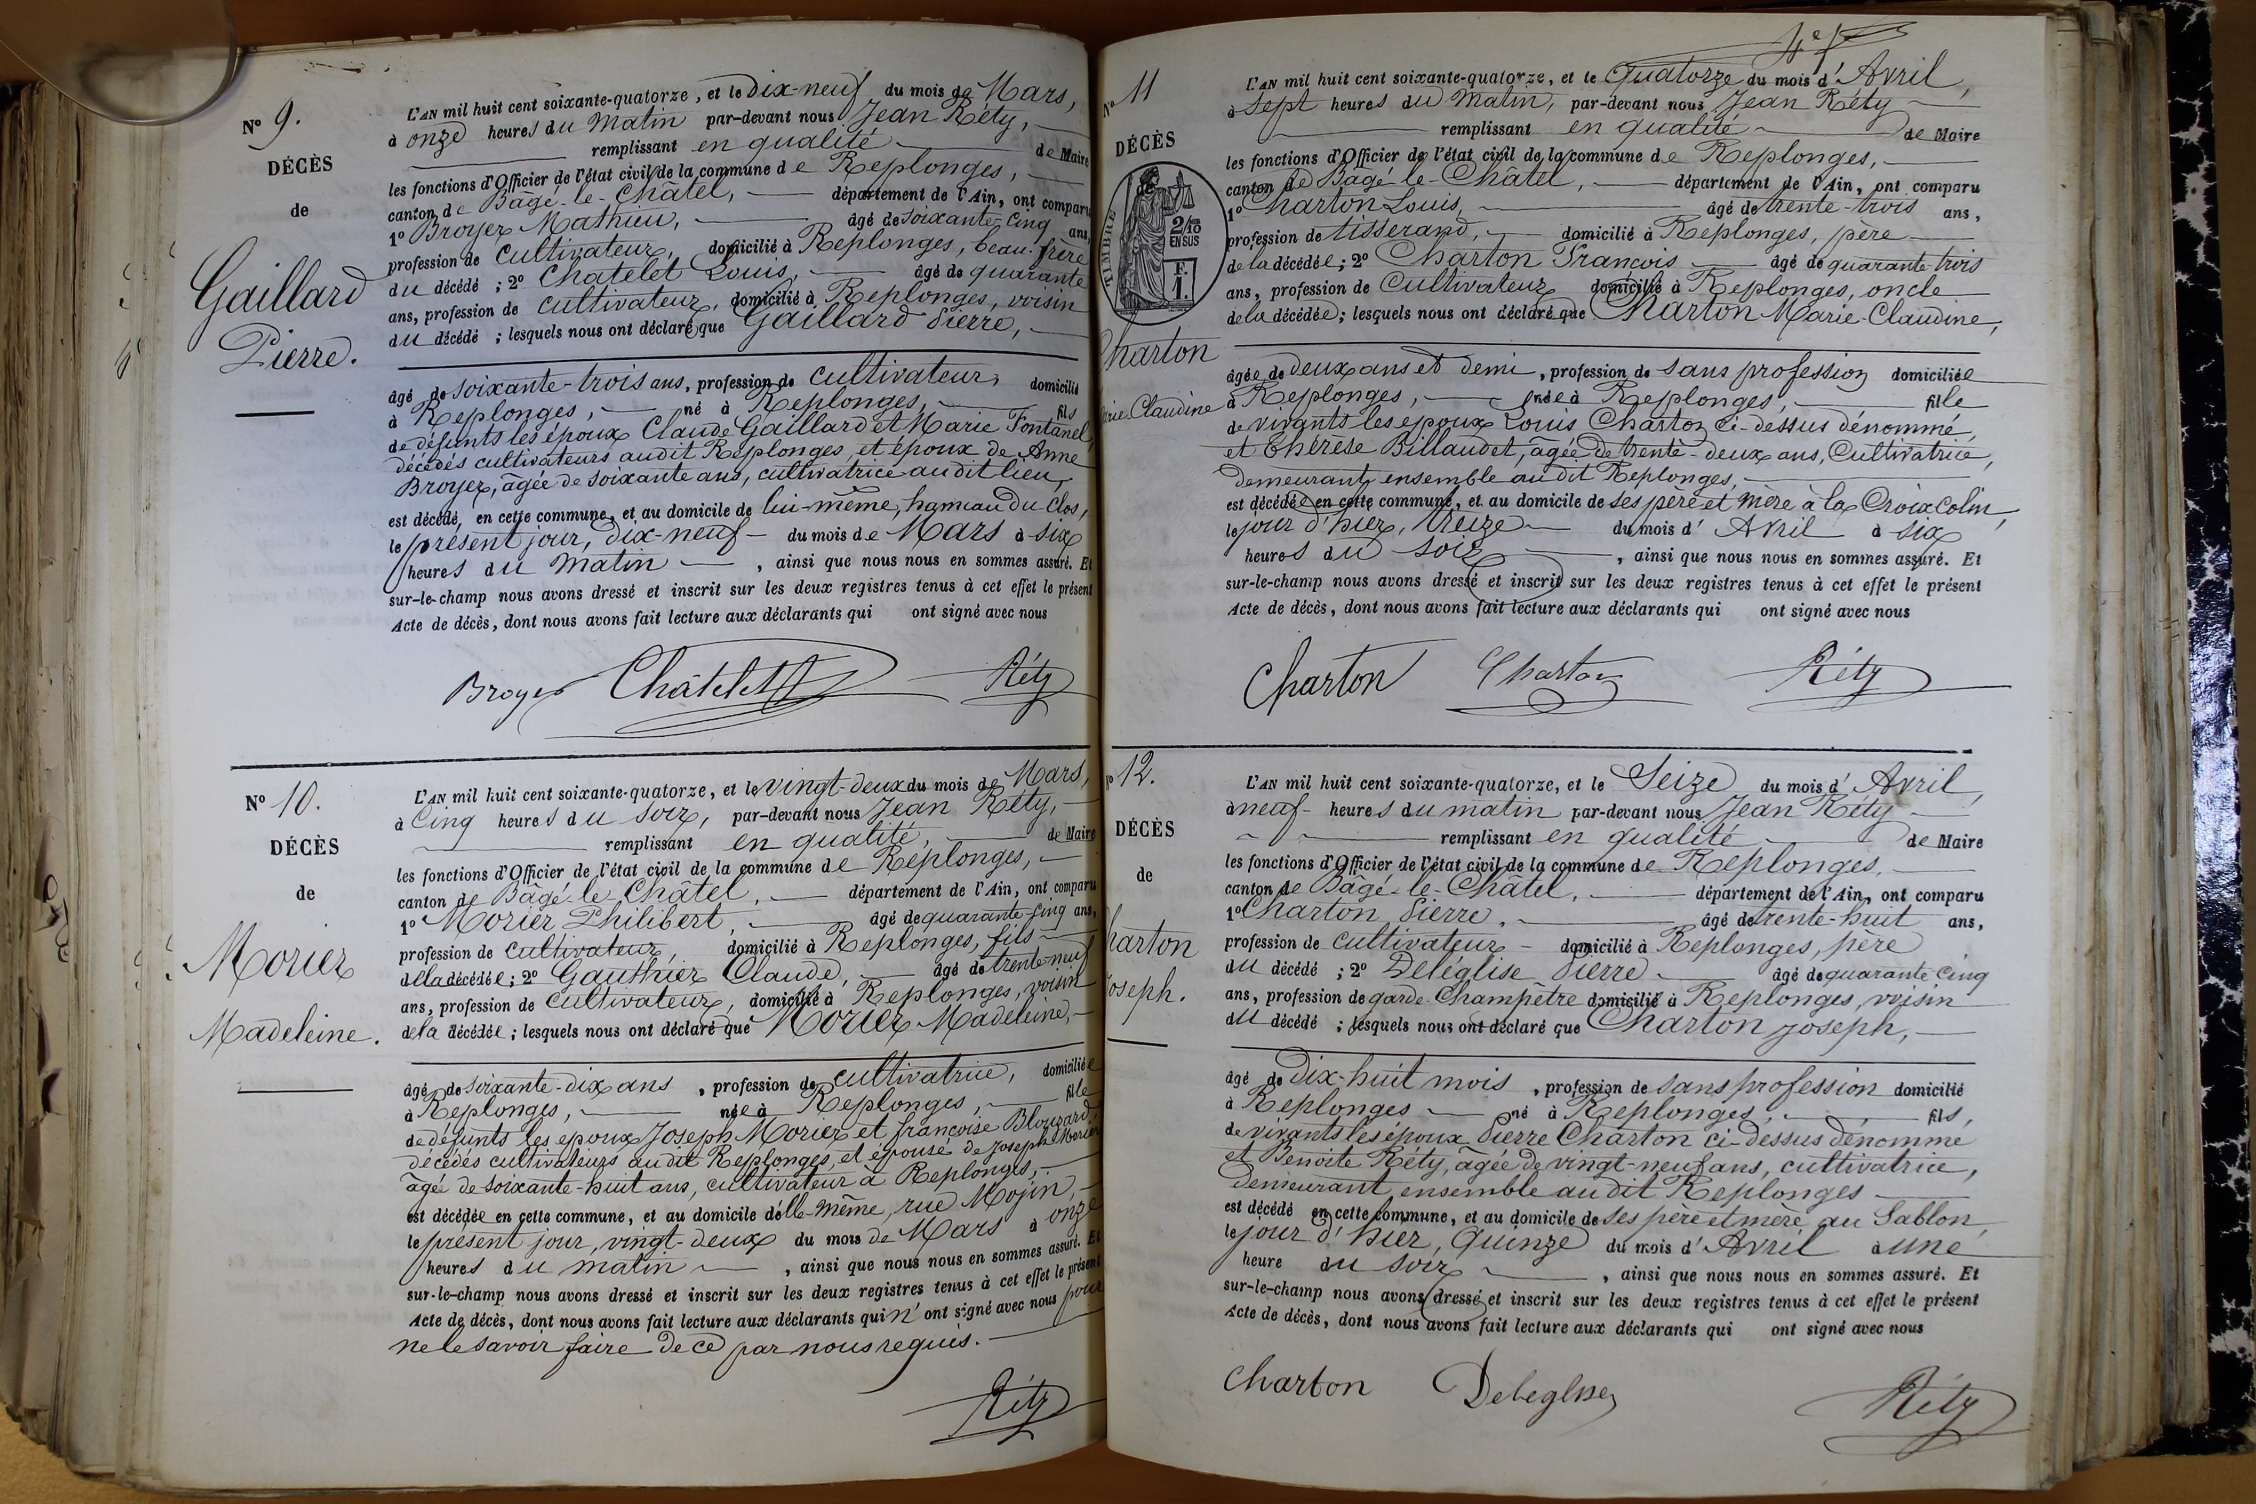 Nº 9.
DÉCÈS
de
Gaillard
Pierre.
L'AN mil huit cent soixante-quatorze, et le Dix-neuf du mois de Mars,
à onze heures du Matin par-devant nous Jean Réty,
remplissant en qualité de Maire
les fonctions d'Officier de l'état civil de la commune de Replonges,
canton de Bâgé-le-Châtel, département de l'Ain, ont comparu
1º Broyer Mathieu, âgé de soixante-cinq ans,
profession de cultivateur, domicilié à Replonges, beau-frère
du décédé ; 2º Chatelet Louis, âgé de quarante
ans, profession de cultivateur, domicilié à Replonges, voisin
du décédé ; lesquels nous ont déclaré que Gaillard Pierre,
âgé de soixante-trois ans, profession de cultivateur, domicilié
à Replonges, né à Replonges, fils
de défunts les époux Claude Gaillard et Marie Fontanel,
décédés cultivateurs audit Replonges, et époux de Anne
Broyer, âgée de soixante ans, cultivatrice audit lieu,
est décédé, en cette commune, et au domicile de lui-même, hameau du Clos,
le présent jour, dix-neuf du mois de Mars à six
heures du matin, ainsi que nous nous en sommes assuré. Et
sur-le-champ nous avons dressé et inscrit sur les deux registres tenus à cet effet le présent
Acte de décès, dont nous avons fait lecture aux déclarants qui ont signé avec nous
Broyer Châtelet Réty
Nº 10.
DÉCÈS
de
Morier
Madeleine.
L'AN mil huit cent soixante-quatorze, et le vingt-deux du mois de Mars,
à Cinq heures du soir, par-devant nous Jean Réty,
remplissant en qualité, de Maire
les fonctions d'Officier de l'état civil de la commune de Replonges,
canton de Bâgé-le-Châtel, département de l'Ain, ont comparu
1º Morier Philibert, âgé de quarante-cinq ans,
profession de cultivateur, domicilié à Replonges, fils
de la décédée ; 2º Gauthier Claude, âgé de trente-neuf
ans, profession de cultivateur, domicilié à Replonges, voisin
de la décédée ; lesquels nous ont déclaré que Morier Madeleine,
âgé de soixante-dix ans, profession de cultivatrice, domiciliée
à Replonges, née à Replonges, fille
de défunts les époux Joseph Morier et françoise Blouzard,
décédés cultivateurs audit Replonges, et épouse de Joseph Morier
âgé de soixante-huit ans, cultivateur à Replonges,
est décédée en cette commune, et au domicile d'elle-même, rue Mojin,
le présent jour, vingt-deux du mois de Mars à onze
heures du matin, ainsi que nous nous en sommes assuré. Et
sur-le-champ nous avons dressé et inscrit sur les deux registres tenus à cet effet le présent
Acte de décès, dont nous avons fait lecture aux déclarants qui n'ont signé avec nous pour
ne le savoir faire de ce par nous requis.
Réty
Nº 11
DÉCÈS
de
TIMBRE
2/10
EN SUS
F.
1.
Charton
Marie Claudine
L'AN mil huit cent soixante-quatorze, et le Quatorze du mois d'Avril,
à sept heures du Matin, par-devant nous Jean Réty
remplissant en qualité de Maire
les fonctions d'Officier de l'état civil de la commune de Replonges,
canton de Bâgé-le-Châtel, département de l'Ain, ont comparu
1º Charton Louis, âgé de trente-trois ans,
profession de tisserand, domicilié à Replonges, père
de la décédée ; 2º Charton François âgé de quarante trois
ans, profession de Cultivateur domicilié à Replonges, oncle
de la décédée ; lesquels nous ont déclaré que Charton Marie-Claudine,
âgée de deux ans et demi, profession de sans profession domiciliée
à Replonges, née à Replonges, fille
de vivants les époux Louis Charton ci-dessus dénommé,
et Thérèse Billaudet, âgée de trente-deux ans, Cultivatrice,
demeurant ensemble audit Replonges,
est décédée en cette commune, et au domicile de ses père et mère à la Croix Colin,
le jour d'hier, treize du mois d'Avril à six
heures du soir, ainsi que nous nous en sommes assuré. Et
sur-le-champ nous avons dressé et inscrit sur les deux registres tenus à cet effet le présent
Acte de décès, dont nous avons fait lecture aux déclarants qui ont signé avec nous
Charton Charton Réty
Nº 12.
DÉCÈS
de
Charton
Joseph.
L'AN mil huit cent soixante-quatorze, et le Seize du mois d'Avril,
à neuf heures du matin par-devant nous Jean Réty
remplissant en qualité de Maire
les fonctions d'Officier de l'état civil de la commune de Replonges,
canton de Bâgé-le-Châtel, département de l'Ain, ont comparu
1º Charton Pierre, âgé de trente-huit ans,
profession de cultivateur domicilié à Replonges, père
du décédé ; 2º Deléglise Pierre âgé de quarante cinq
ans, profession de garde-Champêtre domicilié à Replonges, voisin
du décédé ; lesquels nous ont déclaré que Charton Joseph,
âgé de Dix-huit mois, profession de sans profession domicilié
à Replonges né à Replonges, fils,
de vivants les époux Pierre Charton ci-dessus dénommé
et Benoite Réty, âgée de vingt-neuf ans, cultivatrice,
demeurant ensemble audit Replonges
est décédé en cette commune, et au domicile de ses père et mère au Sablon,
le jour d'hier, Quinze du mois d'Avril à une
heure du soir, ainsi que nous nous en sommes assuré. Et
sur-le-champ nous avons dressé et inscrit sur les deux registres tenus à cet effet le présent
Acte de décès, dont nous avons fait lecture aux déclarants qui ont signé avec nous
Charton Deleglise Réty